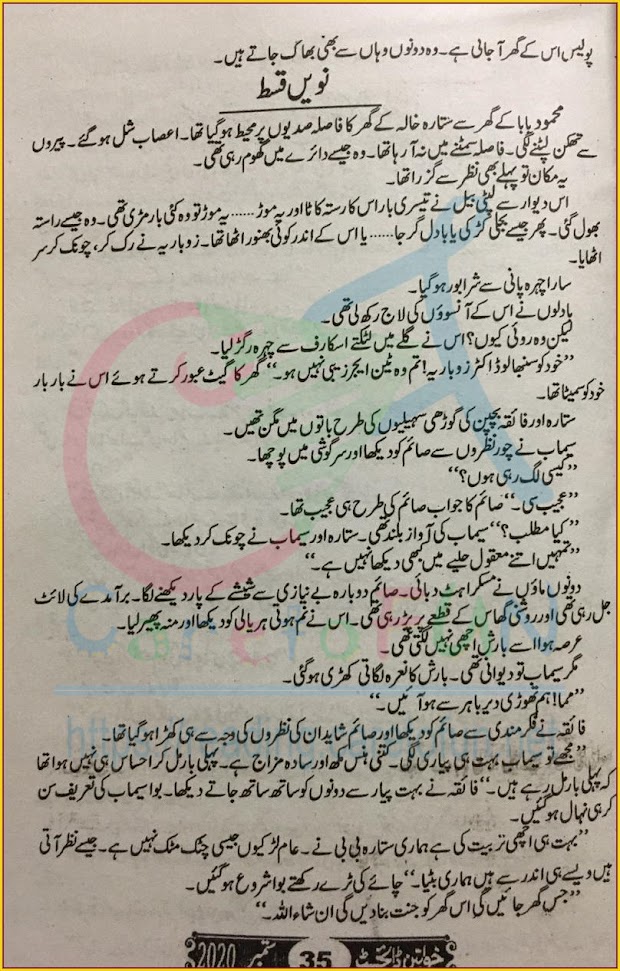 پولیس اس کے گھر آ جاتی ہے۔ وہ دونوں وہاں سے بھی بھاگ جاتے ہیں۔
نویں قسط
محمود بابا کے گھر سے ستارہ خالہ کے گھر کا فاصلہ صدیوں پر محیط ہو گیا تھا۔ اعصاب شل ہو گئے۔ پیروں
سے تھکن لپٹنے لگی۔ فاصلہ سمٹنے میں نہ آ رہا تھا۔ وہ جیسے دائرے میں گھوم رہی تھی۔
یہ مکان تو پہلے بھی نظر سے گزرا تھا۔
اس دیوار سے لپٹی بیل نے تیسری بار اس کا رستہ کاٹا اور یہ موڑ...... یہ موڑ تو وہ کئی بار مڑی تھی۔ وہ جیسے راستہ
بھول گئی۔ پھر جیسے بجلی کڑکی یا بادل گرجا...... یا اس کے اندر کوئی بھنور اٹھا تھا۔ زوباریہ نے رک کر، چونک کر سر
اٹھایا۔
سارا چہرہ پانی سے شرابور ہو گیا۔
بادلوں نے اس کے آنسوؤں کی لاج رکھ لی تھی۔
لیکن وہ روئی کیوں؟ اس نے گلے میں لٹکتے اسکارف سے چہرہ رگڑ لیا۔
”خود کو سنبھالو ڈاکٹر زوباریہ! تم وہ ٹین ایجر زیبی نہیں ہو۔“ گھر کا گیٹ عبور کرتے ہوئے اس نے بار بار
خود کو سمیٹا تھا۔
ستارہ اور فائقہ بچپن کی گوڑھی سہیلیوں کی طرح باتوں میں مگن تھیں۔
سیماب نے چور نظروں سے صائم کو دیکھا اور سرگوشی میں پوچھا۔
”کیسی لگ رہی ہوں؟“
”عجیب سی۔“ صائم کا جواب صائم کی طرح ہی عجیب تھا۔
”کیا مطلب؟“ سیماب کی آواز بلند تھی۔ ستارہ اور سیماب نے چونک کر دیکھا۔
”تمہیں اتنے معقول حلیے میں کبھی دیکھا نہیں ہے۔“
دونوں ماؤں نے مسکراہٹ دبائی۔ صائم دوبارہ بے نیازی سے شیشے کے پار دیکھنے لگا۔ برآمدے کی لائٹ
جل رہی تھی اور روشنی گھاس کے قطعے پر پڑ رہی تھی۔ اس نے نم ہوتی ہریالی کو دیکھا اور منہ پھیر لیا۔
عرصہ ہوا اسے بارش اچھی نہیں لگتی تھی۔
مگر سیماب تو دیوانی تھی۔ بارش کا نعرہ لگاتی کھڑی ہو گئی۔
”مما! ہم تھوڑی دیر باہر سے ہو آئیں۔“
فائقہ نے فکر مندی سے صائم کو دیکھا اور صائم شاید ان کی نظروں کی وجہ سے ہی کھڑا ہو گیا تھا۔
”مجھے تو سیماب بہت ہی پیاری لگی۔ کتنی ہنس مکھ اور سادہ مزاج ہے۔ پہلی بار مل کر احساس ہی نہیں ہوا تھا
کہ پہلی بار مل رہے ہیں۔“ فائقہ نے بہت پیار سے دونوں کو ساتھ ساتھ جاتے دیکھا۔ بوا سیماب کی تعریف سن
کر ہی نہال ہو گئیں۔
”بہت ہی اچھی تربیت کی ہے ہماری ستارہ بی بی نے۔ عام لڑکیوں جیسی چٹک مٹک نہیں ہے۔ جیسے نظر آتی
ہیں ویسے ہی اندر سے ہیں ہماری بٹیا۔“ چائے کی ٹرے رکھتے بوا شروع ہو گئیں۔
”جس گھر جائیں گی اس گھر کو جنت بنا دیں گی ان شاء اللہ۔“
خواتین ڈائجسٹ 35 ستمبر 2020